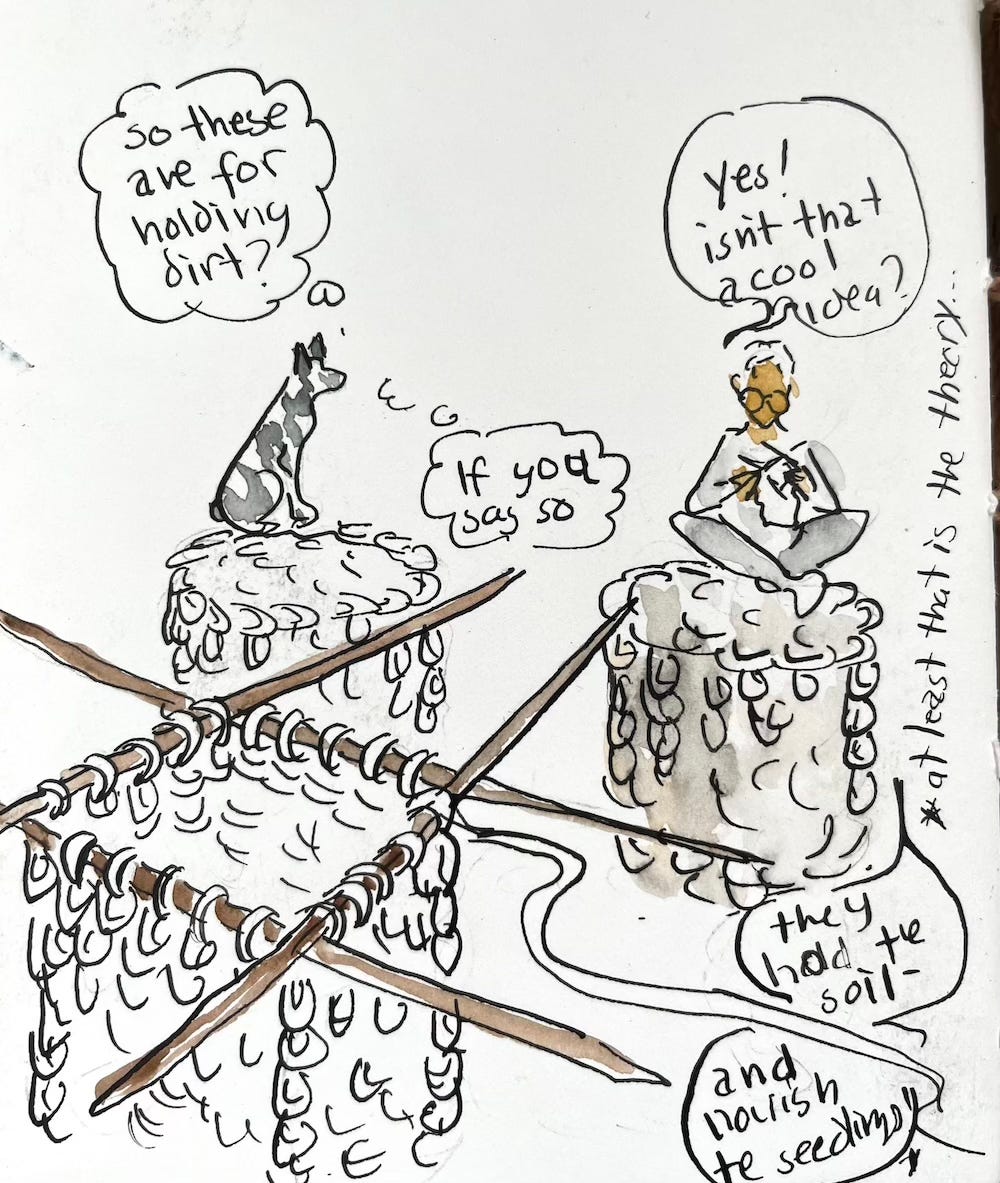 so these
are for
holding
dirt?
yes!
isn't that
a cool
idea?
If you
say so
they
hold te
soil-
and
nourish
te seedlings*
*at least that is the theory...